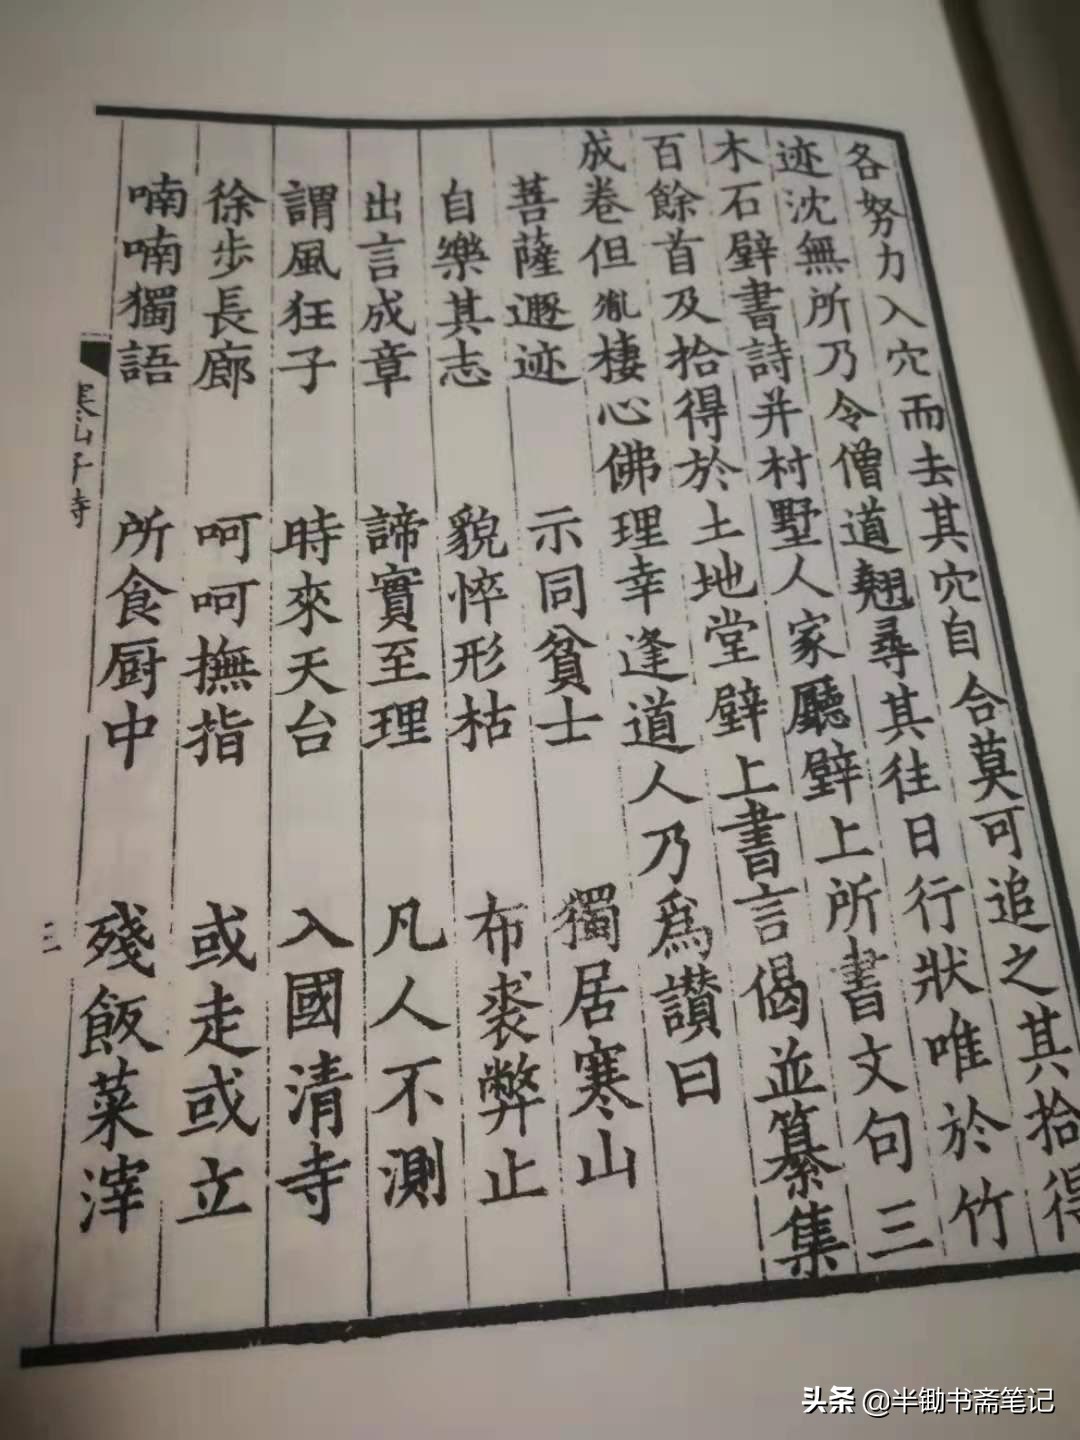 各努力入穴而去其穴自合莫可追之其拾得
迹沈無所乃令僧道翹尋其往日行狀唯於竹
木石壁書詩并村墅人家廳壁上所書文句三
百餘首及拾得於土地堂壁上書言偈並纂集
成卷但胤棲心佛理幸逢道人乃爲讃曰
菩薩遯迹 示同貧士 獨居寒山
自樂其志 貌悴形枯 布裘弊止
出言成章 諦實至理 凡人不測
謂風狂子 時來天台 入國清寺
徐步長廊 呵呵撫指 或走或立
喃喃獨語 所食厨中 殘飯菜滓
寒山子詩
三
头条 @半锄书斋笔记